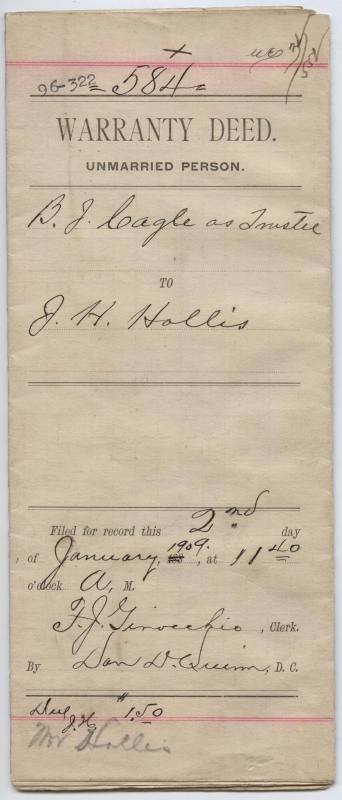 96-322 584
WARRANTY DEED.
UNMARRIED PERSON.
B. J. Cagle as Trustee
TO
J. H. Hollis
Filed for record this 2nd day
of January, 1909, at 11 40
o'clock A. M.
F. J. Ginocchio, Clerk.
By Dan D. Quinn, D. C.
Due $1.50
J. H.
Mr Hollis